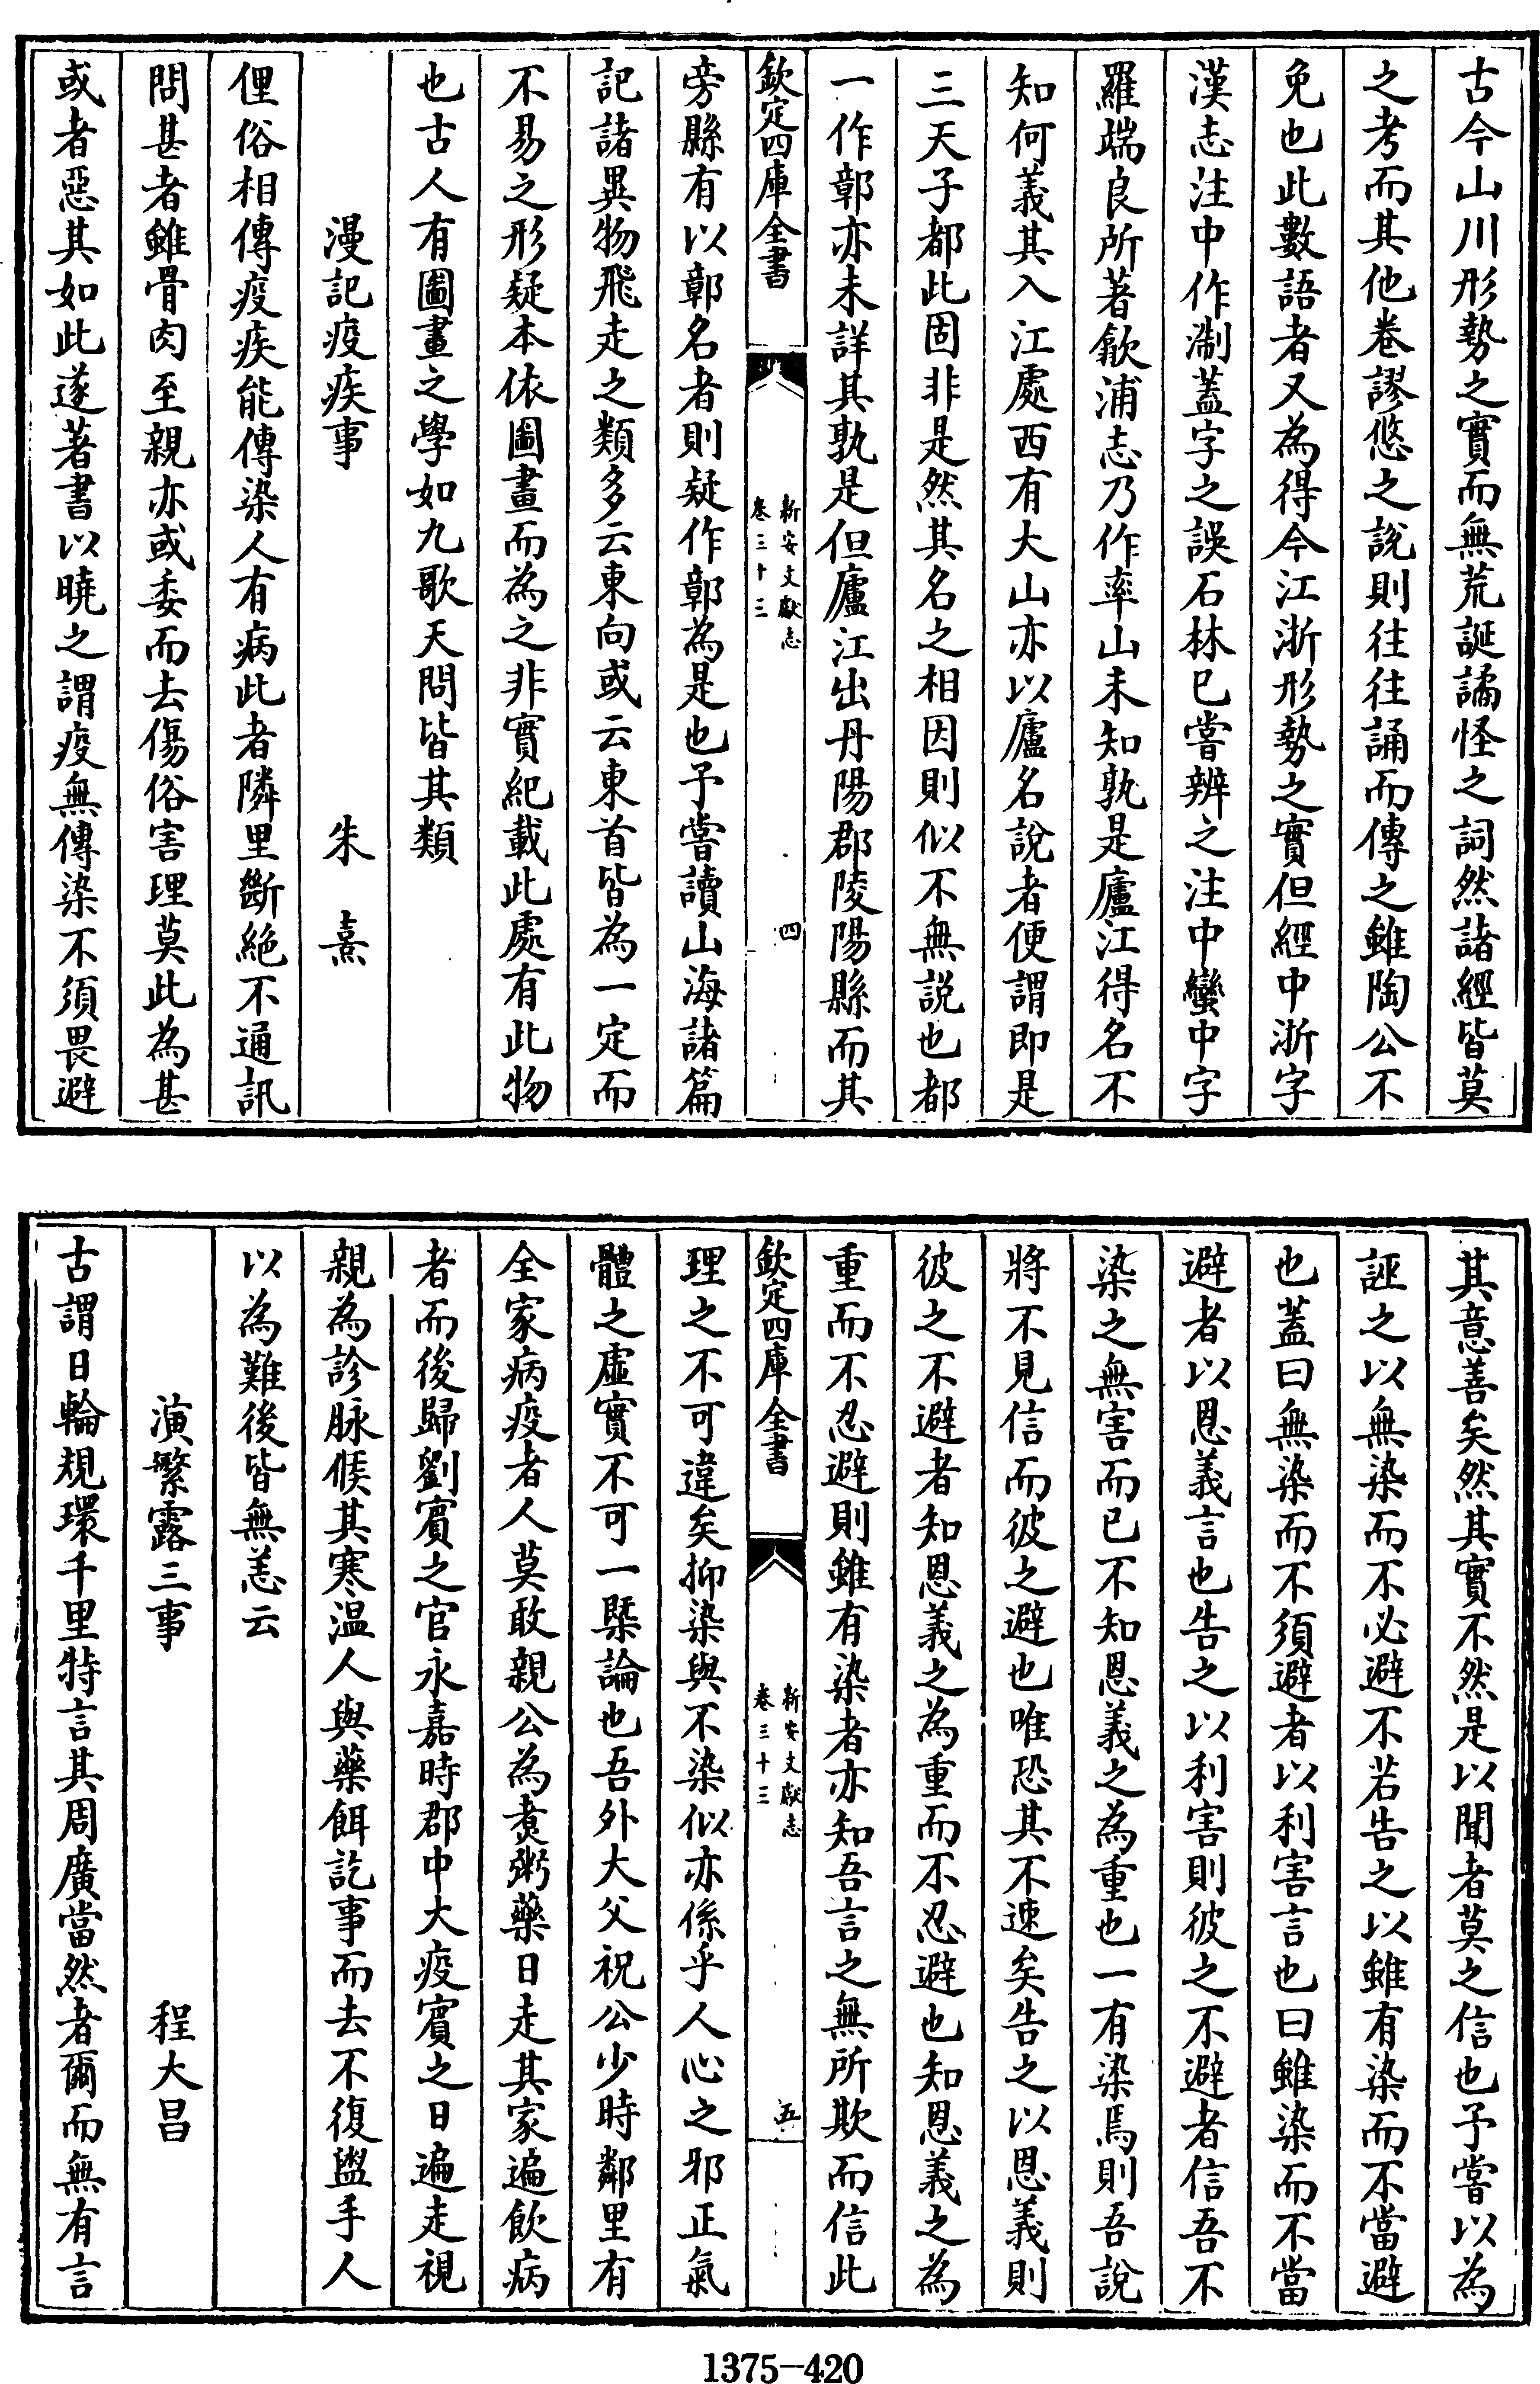 古今山川形勢之實而無荒誕譎怪之詞然諸經皆莫
之考而其他卷謬悠之説則往往誦而傳之雖陶公不
免也此數語者又為得今江浙形勢之實但經中浙字
漢志注中作淛蓋字之誤石林已嘗辨之注中蠻中字
羅端良所著歙浦志乃作率山未知孰是廬江得名不
知何義其入江處西有大山亦以廬名說者便謂即是
三天子都此固非是然其名之相因則似不無説也都
一作鄣亦未詳其孰是但廬江出丹陽郡陵陽縣而其
欽定四庫全書
新安文獻志
卷三十三
四
旁縣有以鄣名者則疑作鄣為是也予嘗讀山海諸篇
記諸異物飛走之類多云東向或云東首皆為一定而
不易之形疑本依圖畫而為之非實紀載此處有此物
也古人有圖畫之學如九歌天問皆其類
漫記疫疾事 朱熹
俚俗相傳疫疾能傳染人有病此者隣里斷絶不通訊
問甚者雖骨肉至親亦或委而去傷俗害理莫此為甚
或者惡其如此遂著書以曉之謂疫無傳染不須畏避
其意善矣然其實不然是以聞者莫之信也予嘗以為
誣之以無染而不必避不若告之以雖有染而不當避
也蓋曰無染而不須避者以利害言也曰雖染而不當
避者以恩義言也告之以利害則彼之不避者信吾不
染之無害而已不知恩義之為重也一有染焉則吾說
將不見信而彼之避也唯恐其不速矣告之以恩義則
彼之不避者知恩義之為重而不忍避也知恩義之為
重而不忍避則雖有染者亦知吾言之無所欺而信此
欽定四庫全書
新安文獻志
卷三十三
五
理之不可違矣抑染與不染似亦係乎人心之邪正氣
體之虛實不可一槩論也吾外大父祝公少時鄰里有
全家病疫者人莫敢親公為煑粥藥日走其家遍飲病
者而後歸劉賓之官永嘉時郡中大疫賓之日遍走視
親為診脉候其寒温人與藥餌訖事而去不復盥手人
以為難後皆無恙云
演繁露三事 程大昌
古謂日輪規環千里特言其周廣當然者爾而無有言
1375-420